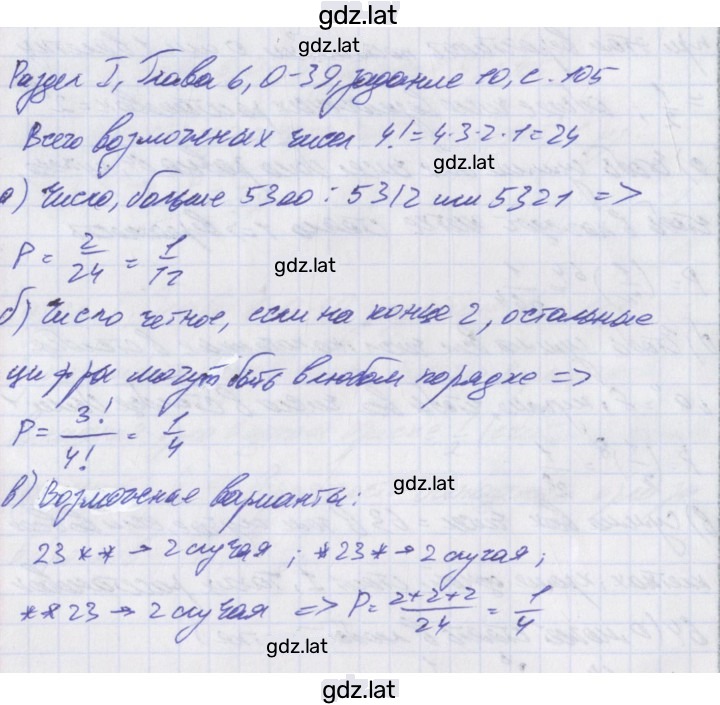 gdz.lat
gdz.lat
Раздел I, Глава 6, О-39, задание 10, с. 105
Всего возможных чисел 4! = 4·3·2·1 = 24
gdz.lat
а) Число, больше 5300: 5312 или 5321 =>
P = 2/24 = 1/12
gdz.lat
б) Число четное, если на конце 2, остальные
цифры могут быть в любом порядке =>
P = 3!/4! = 1/4
gdz.lat
в) Возможные варианты:
23** → 2 случая; *23* → 2 случая;
**23 → 2 случая => P = 2+2+2/24 = 1/4
gdz.lat
gdz.lat